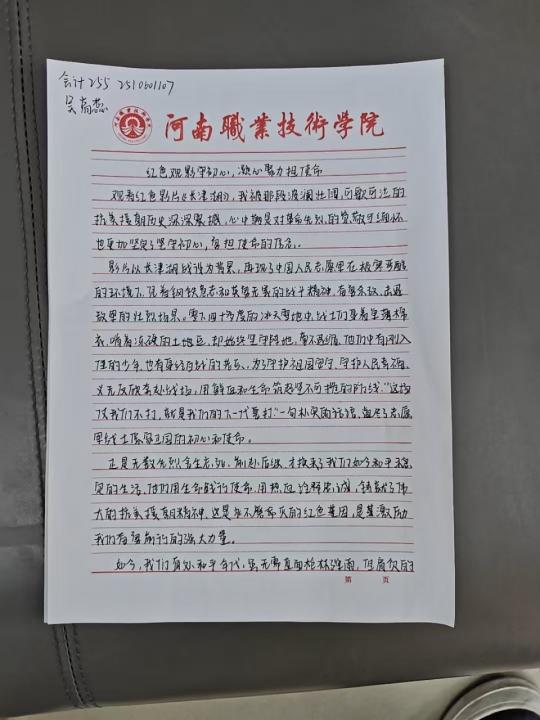 会计255 2510601107
吴嵩蕊
河南職業技術学院
红色观影守初心,凝心聚力担使命
观看红色影片《长津湖》,我被那段波澜壮阔、可歌可泣的
抗美援朝历史深深震撼,心中满是对革命先烈的崇敬与缅怀
也更加坚定了坚守初心,勇担使命的信念。
影片以长津湖战役为背景,再现了中国人民志愿军在极寒严酷
的环境下,凭着钢铁意志和英勇无畏的战斗精神,奋勇杀敌、击退
敌军的壮烈场景。零下四十多度的冰天雪地中,战士们穿着单薄棉
衣,啃着冻硬的土地豆,却始终坚守阵地,毫不退缩。他们中有刚入
伍的少年,也有身经百战的老兵,为了守护祖国安宁、守护人民幸福,
义无反顾奔赴战场,用鲜血和生命筑起坚不可摧的防线。"这场
仗我们不打,就是我们的下一代要打"一句朴实的话语,蕴含了志愿
军战士保家卫国的初心和使命。
正是无数先烈舍生忘死、前赴后继,才换来了我们如今和平安
宁的生活。他们用生命践行使命,用热血诠释忠诚,铸就了伟
大的抗美援朝精神,这是永不磨灭的红色基因,是激励
我们奋勇前行的强大力量。
如今,我们身处和平年代,虽无需直面枪林弹雨,但肩负的
第 页